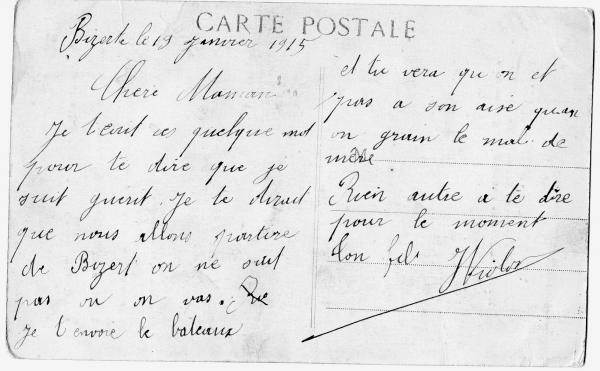 CARTE POSTALE
Bizerte le 19 Janvier 1915
Chere Maman
Je t'ecrit ces quelque mot
pour te dire que je
suit guerit. Je te dirait
que nous allons partire
de Bizert on ne sait
pas ou on vas.
Je t envoie le bateaux
et tu vera qu on et
pas a son aise quan
on grain le mal de
mere
Rien autre a te dire
pour le moment
ton fils